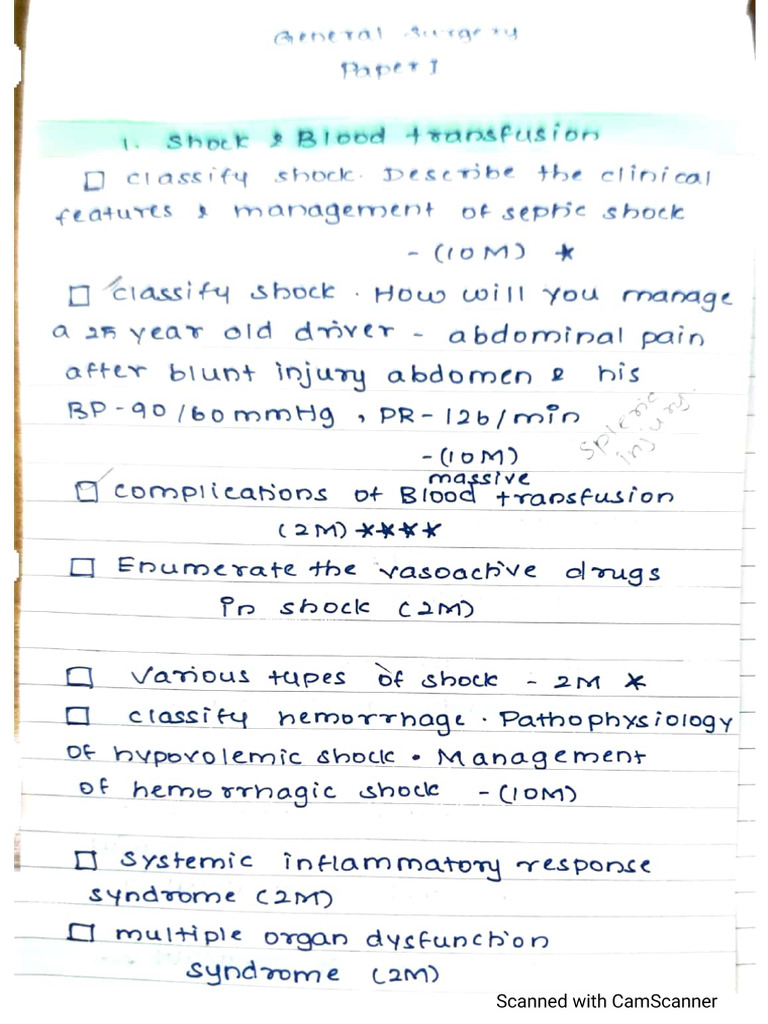 General Surgery
Paper I
1. Shock & Blood transfusion
□ classify shock. Describe the clinical
features & management of septic shock
- (10M) *
□ classify shock. How will you manage
a 25 year old driver - abdominal pain
after blunt injury abdomen & his
BP-90/60mmHg, PR-126/min
splenic
injury
-(10M)
massive
□ complications of Blood transfusion
(2M) ****
□ Enumerate the vasoactive drugs
in shock (2M)
□ various types of shock - 2M *
□ classify hemorrhage. Pathophysiology
of hypovolemic shock. Management
of hemorrhagic shock -(10M)
□ systemic inflammatory response
syndrome (2M)
□ multiple organ dysfunction
syndrome (2M)
Scanned with CamScanner